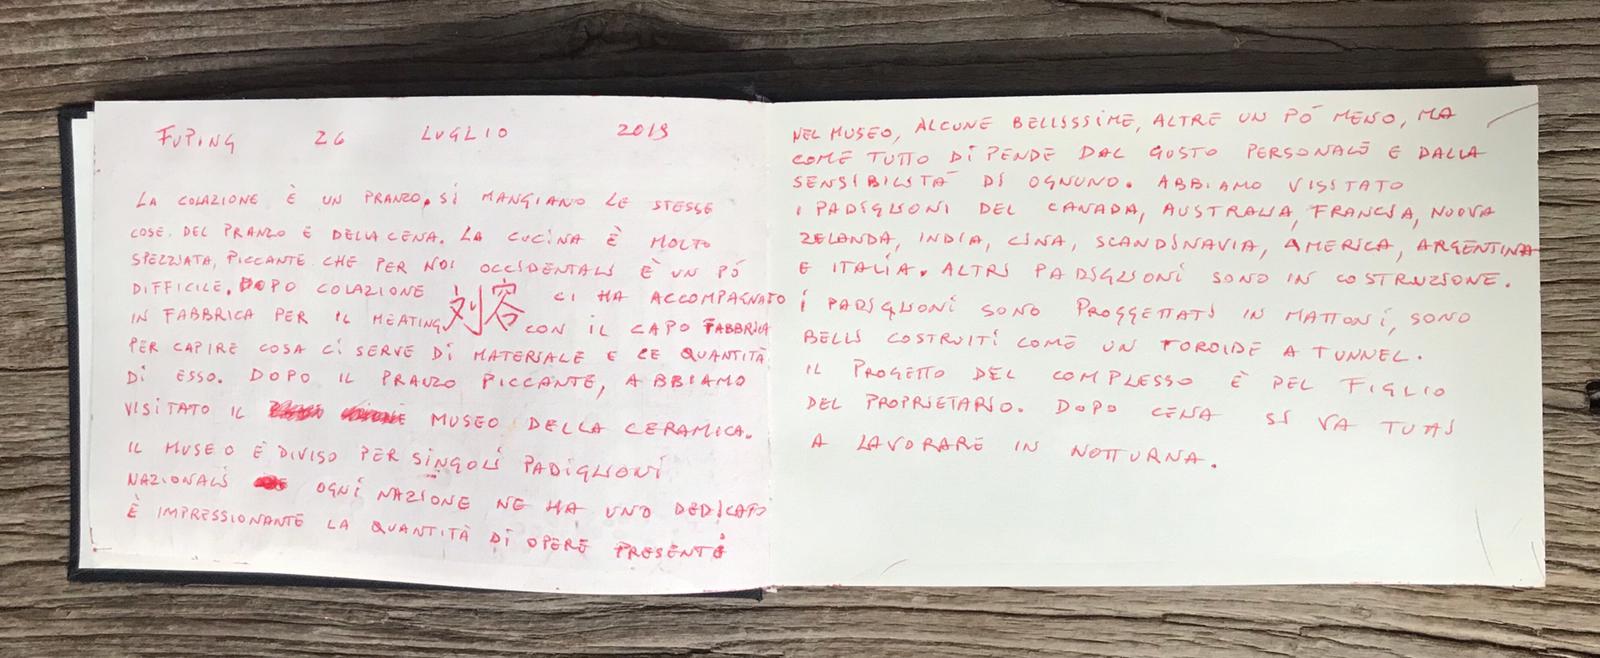 FUPING 26 LUGLIO 2019
LA COLAZIONE È UN PRANZO, SI MANGIANO LE STESSE
COSE DEL PRANZO E DELLA CENA. LA CUCINA È MOLTO
SPEZZIATA, PICCANTE CHE PER NOI OCCIDENTALI È UN PÓ
DIFFICILE. DOPO COLAZIONE 刘容 CI HA ACCOMPAGNATO
IN FABBRICA PER IL MEATING CON IL CAPO FABBRICA
PER CAPIRE COSA CI SERVE DI MATERIALE E LE QUANTITÀ
DI ESSO. DOPO IL PRANZO PICCANTE, ABBIAMO
VISITATO IL MUSEO DELLA CERAMICA.
IL MUSEO È DIVISO PER SINGOLI PADIGLIONI
NAZIONALI OGNI NAZIONE NE HA UNO DEDICATO
È IMPRESSIONANTE LA QUANTITÀ DI OPERE PRESENTE
NEL MUSEO, ALCUNE BELLISSIME, ALTRE UN PÓ MENO, MA
COME TUTTO DIPENDE DAL GUSTO PERSONALE E DALLA
SENSIBILITÀ DI OGNUNO. ABBIAMO VISITATO
I PADIGLIONI DEL CANADA, AUSTRALIA, FRANCIA, NUOVA
ZELANDA, INDIA, CINA, SCANDINAVIA, AMERICA, ARGENTINA
E ITALIA. ALTRI PADIGLIONI SONO IN COSTRUZIONE.
I PADIGLIONI SONO PROGGETTATI IN MATTONI, SONO
BELLI COSTRUITI COME UN TOROIDE A TUNNEL.
IL PROGETTO DEL COMPLESSO È DEL FIGLIO
DEL PROPRIETARIO. DOPO CENA SI VA TUTTI
A LAVORARE IN NOTTURNA.